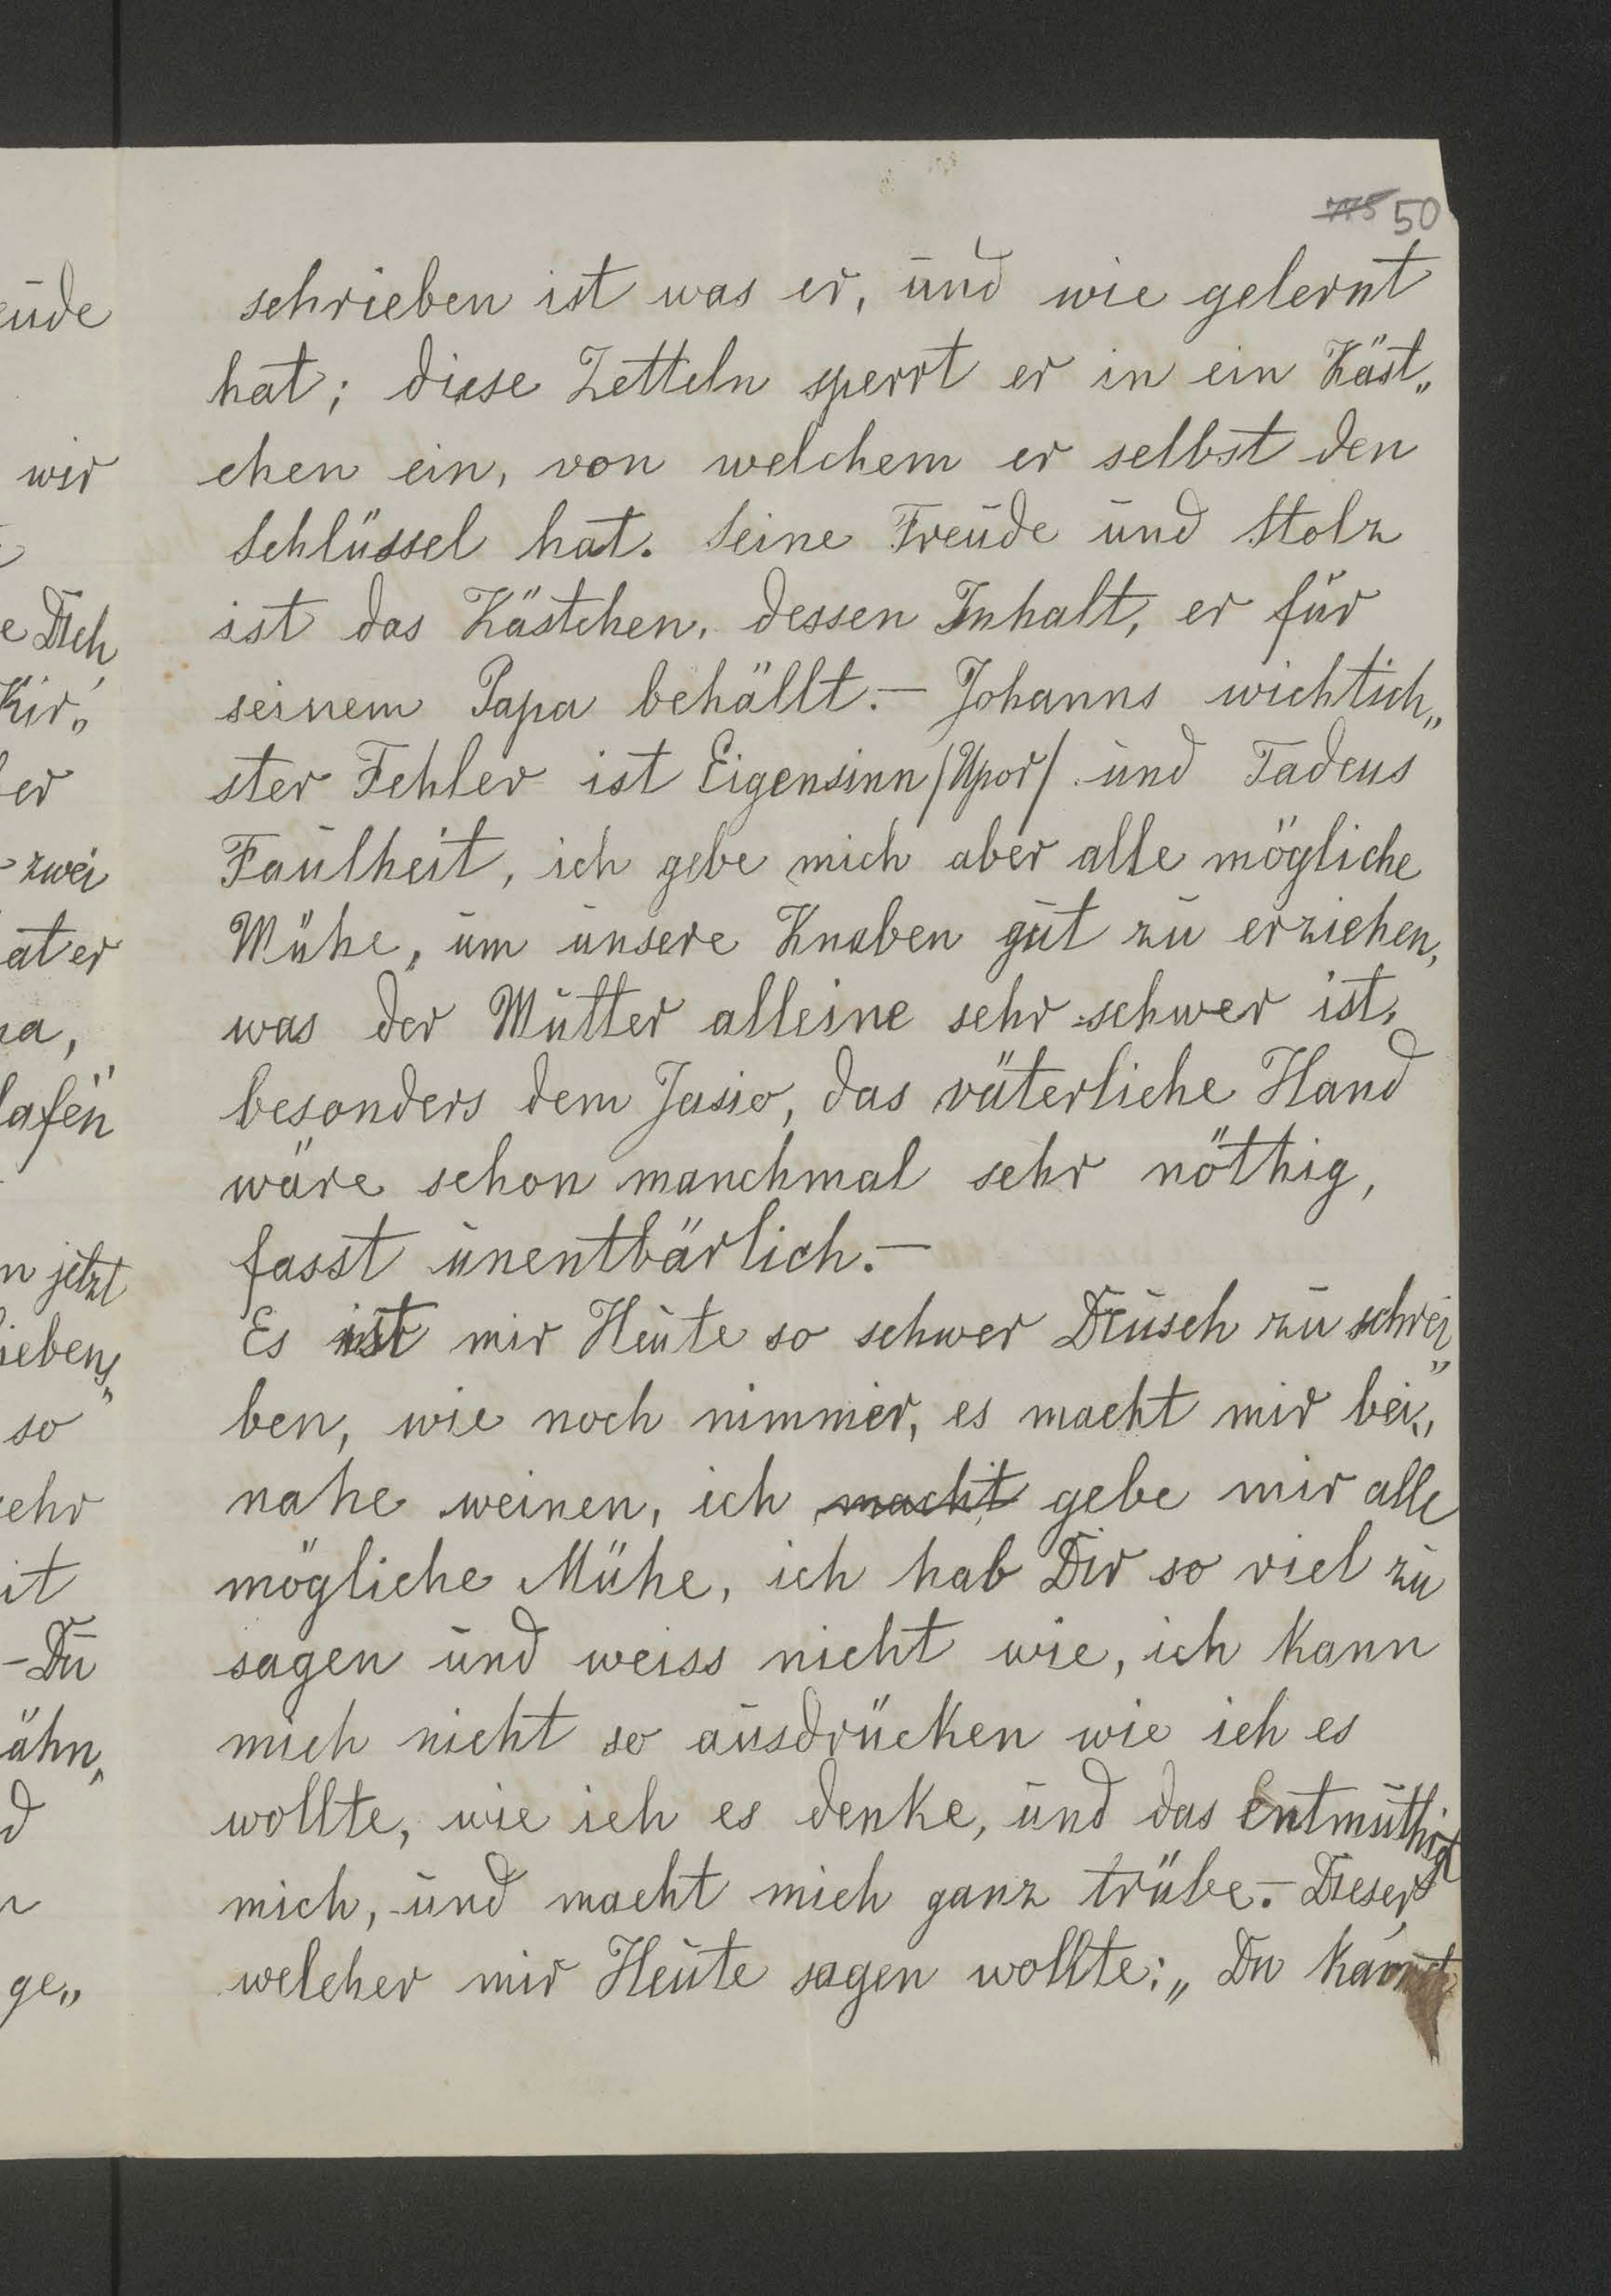 50
schrieben ist was er, und wie gelernt
hat; diese Zetteln sperrt er in ein Käst„
chen ein, von welchem er selbst den
Schlüssel hat. Seine Freude und Stolz
ist das Kästchen, dessen Inhalt, er für
seinem Papa behällt.— Johanns wichtich„
ster Fehler ist Eigensinn /Upor/ und Tadeus
Faulheit, ich gebe mich aber alle mögliche
Mühe, um unsere Knaben gut zu erziehen,
was der Mutter alleine sehr schwer ist,
besonders dem Jasio, das väterliche Hand
wäre schon manchmal sehr nöthig,
fasst unentbärlich.—
Es ist mir Heute so schwer Deusch zu schrei„
ben, wie noch nimmer, es macht mir bei„
nahe weinen, ich macht gebe mir alle
mögliche Mühe, ich hab Dir so viel zu
sagen und weiss nicht wie, ich kann
mich nicht so ausdrücken wie ich es
wollte, wie ich es denke, und das entmuthigt
mich, und macht mich ganz trübe.— Dieser
welcher mir Heute sagen wollte: „Du
eude
wir
e Dich
Kir„
er
zwei
at er
a,
lafen
n jetzt
ieben„
so
ehr
it
— Du
ähn„
d
ge„